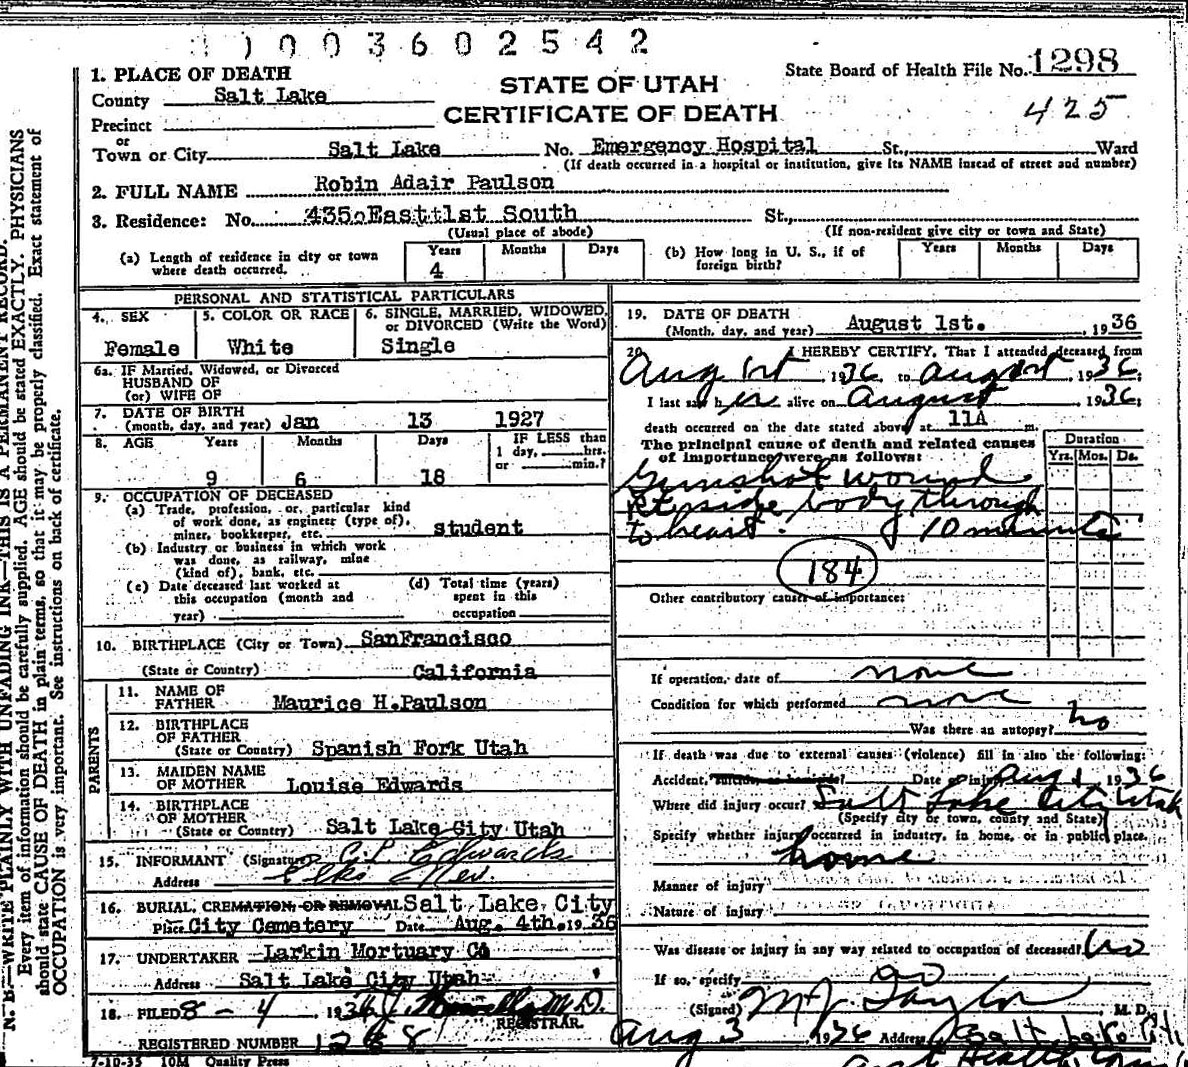 0003602542
1. PLACE OF DEATH
STATE OF UTAH
State Board of Health File No. 1298
County Salt Lake
CERTIFICATE OF DEATH
425
Precinct
or
Town or City Salt Lake No. Emergency Hospital St., Ward
(If death occurred in a hospital or institution, give its NAME insead of street and number)
2. FULL NAME Robin Adair Paulson
3. Residence: No. 435 East 1st South St.,
(Usual place of abode) (If non-resident give city or town and State)
(a) Length of residence in city or town where death occurred. Years 4 Months Days
(b) How long in U. S., if of foreign birth? Years Months Days
PERSONAL AND STATISTICAL PARTICULARS
4. SEX Female
5. COLOR OR RACE White
6. SINGLE, MARRIED, WIDOWED, or DIVORCED (Write the Word) Single
6a. IF Married, Widowed, or Divorced
HUSBAND OF
(or) WIFE OF
7. DATE OF BIRTH
(month, day, and year) Jan 13 1927
8. AGE Years 9 Months 6 Days 18
IF LESS than 1 day, hrs. or min.?
9. OCCUPATION OF DECEASED
(a) Trade, profession, or, particular kind of work done, as engineer (type of), miner, bookkeeper, etc. student
(b) Industry or business in which work was done, as railway, mine (kind of), bank, etc.
(c) Date deceased last worked at this occupation (month and year)
(d) Total time (years) spent in this occupation
10. BIRTHPLACE (City or Town) SanFrancisco
(State or Country) California
PARENTS
11. NAME OF FATHER Maurice H.Paulson
12. BIRTHPLACE OF FATHER
(State or Country) Spanish Fork Utah
13. MAIDEN NAME OF MOTHER Louise Edwards
14. BIRTHPLACE OF MOTHER
(State or Country) Salt Lake City Utah
15. INFORMANT (Signature) Edwards
Address Elko Nev.
16. BURIAL, CREMATION, OR REMOVAL Salt Lake City
Place City Cemetery Date Aug. 4th. 1936
17. UNDERTAKER Larkin Mortuary Co
Address Salt Lake City Utah
18. FILED 8 - 4, 1936 M.D.
REGISTRAR.
REGISTERED NUMBER 1268
7-10-35 10M Quality Press
19. DATE OF DEATH
(Month, day, and year) August 1st. , 1936
20. I HEREBY CERTIFY, That I attended deceased from
Aug 1st 1936 to August , 1936
I last saw her alive on August , 1936;
death occurred on the date stated above, at 11A m.
The principal cause of death and related causes of importance were as follows:
Duration
Yrs. Mos. Ds.
Gunshot wound
Rt side body through
to heart. 10 minutes
184
Other contributory causes of importance:
If operation, date of none
Condition for which performed none
Was there an autopsy? no
If death was due to external causes (violence) fill in also the following:
Accident, suicide, or homicide? Date of injury Aug 1, 1936
Where did injury occur? Salt Lake City Utah
(Specify city or town, county and State)
Specify whether injury occurred in industry, in home, or in public place.
home
Manner of injury
Nature of injury
Was disease or injury in any way related to occupation of deceased? no
If so, specify
(Signed) Taylor , M. D.
Aug 3 , 1936 Address Salt Lake City
N. B.—WRITE PLAINLY WITH UNFADING INK—THIS IS A PERMANENT RECORD.
Every item of information should be carefully supplied. AGE should be stated EXACTLY. PHYSICIANS
should state CAUSE OF DEATH in plain terms, so that it may be properly classified. Exact statement of
OCCUPATION is very important. See instructions on back of certificate.